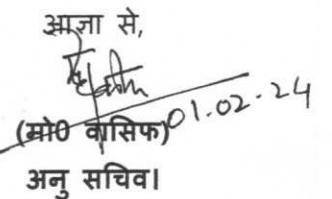 आज्ञा से,
01.02.24
(मो0 वासिफ)
अनु सचिव।